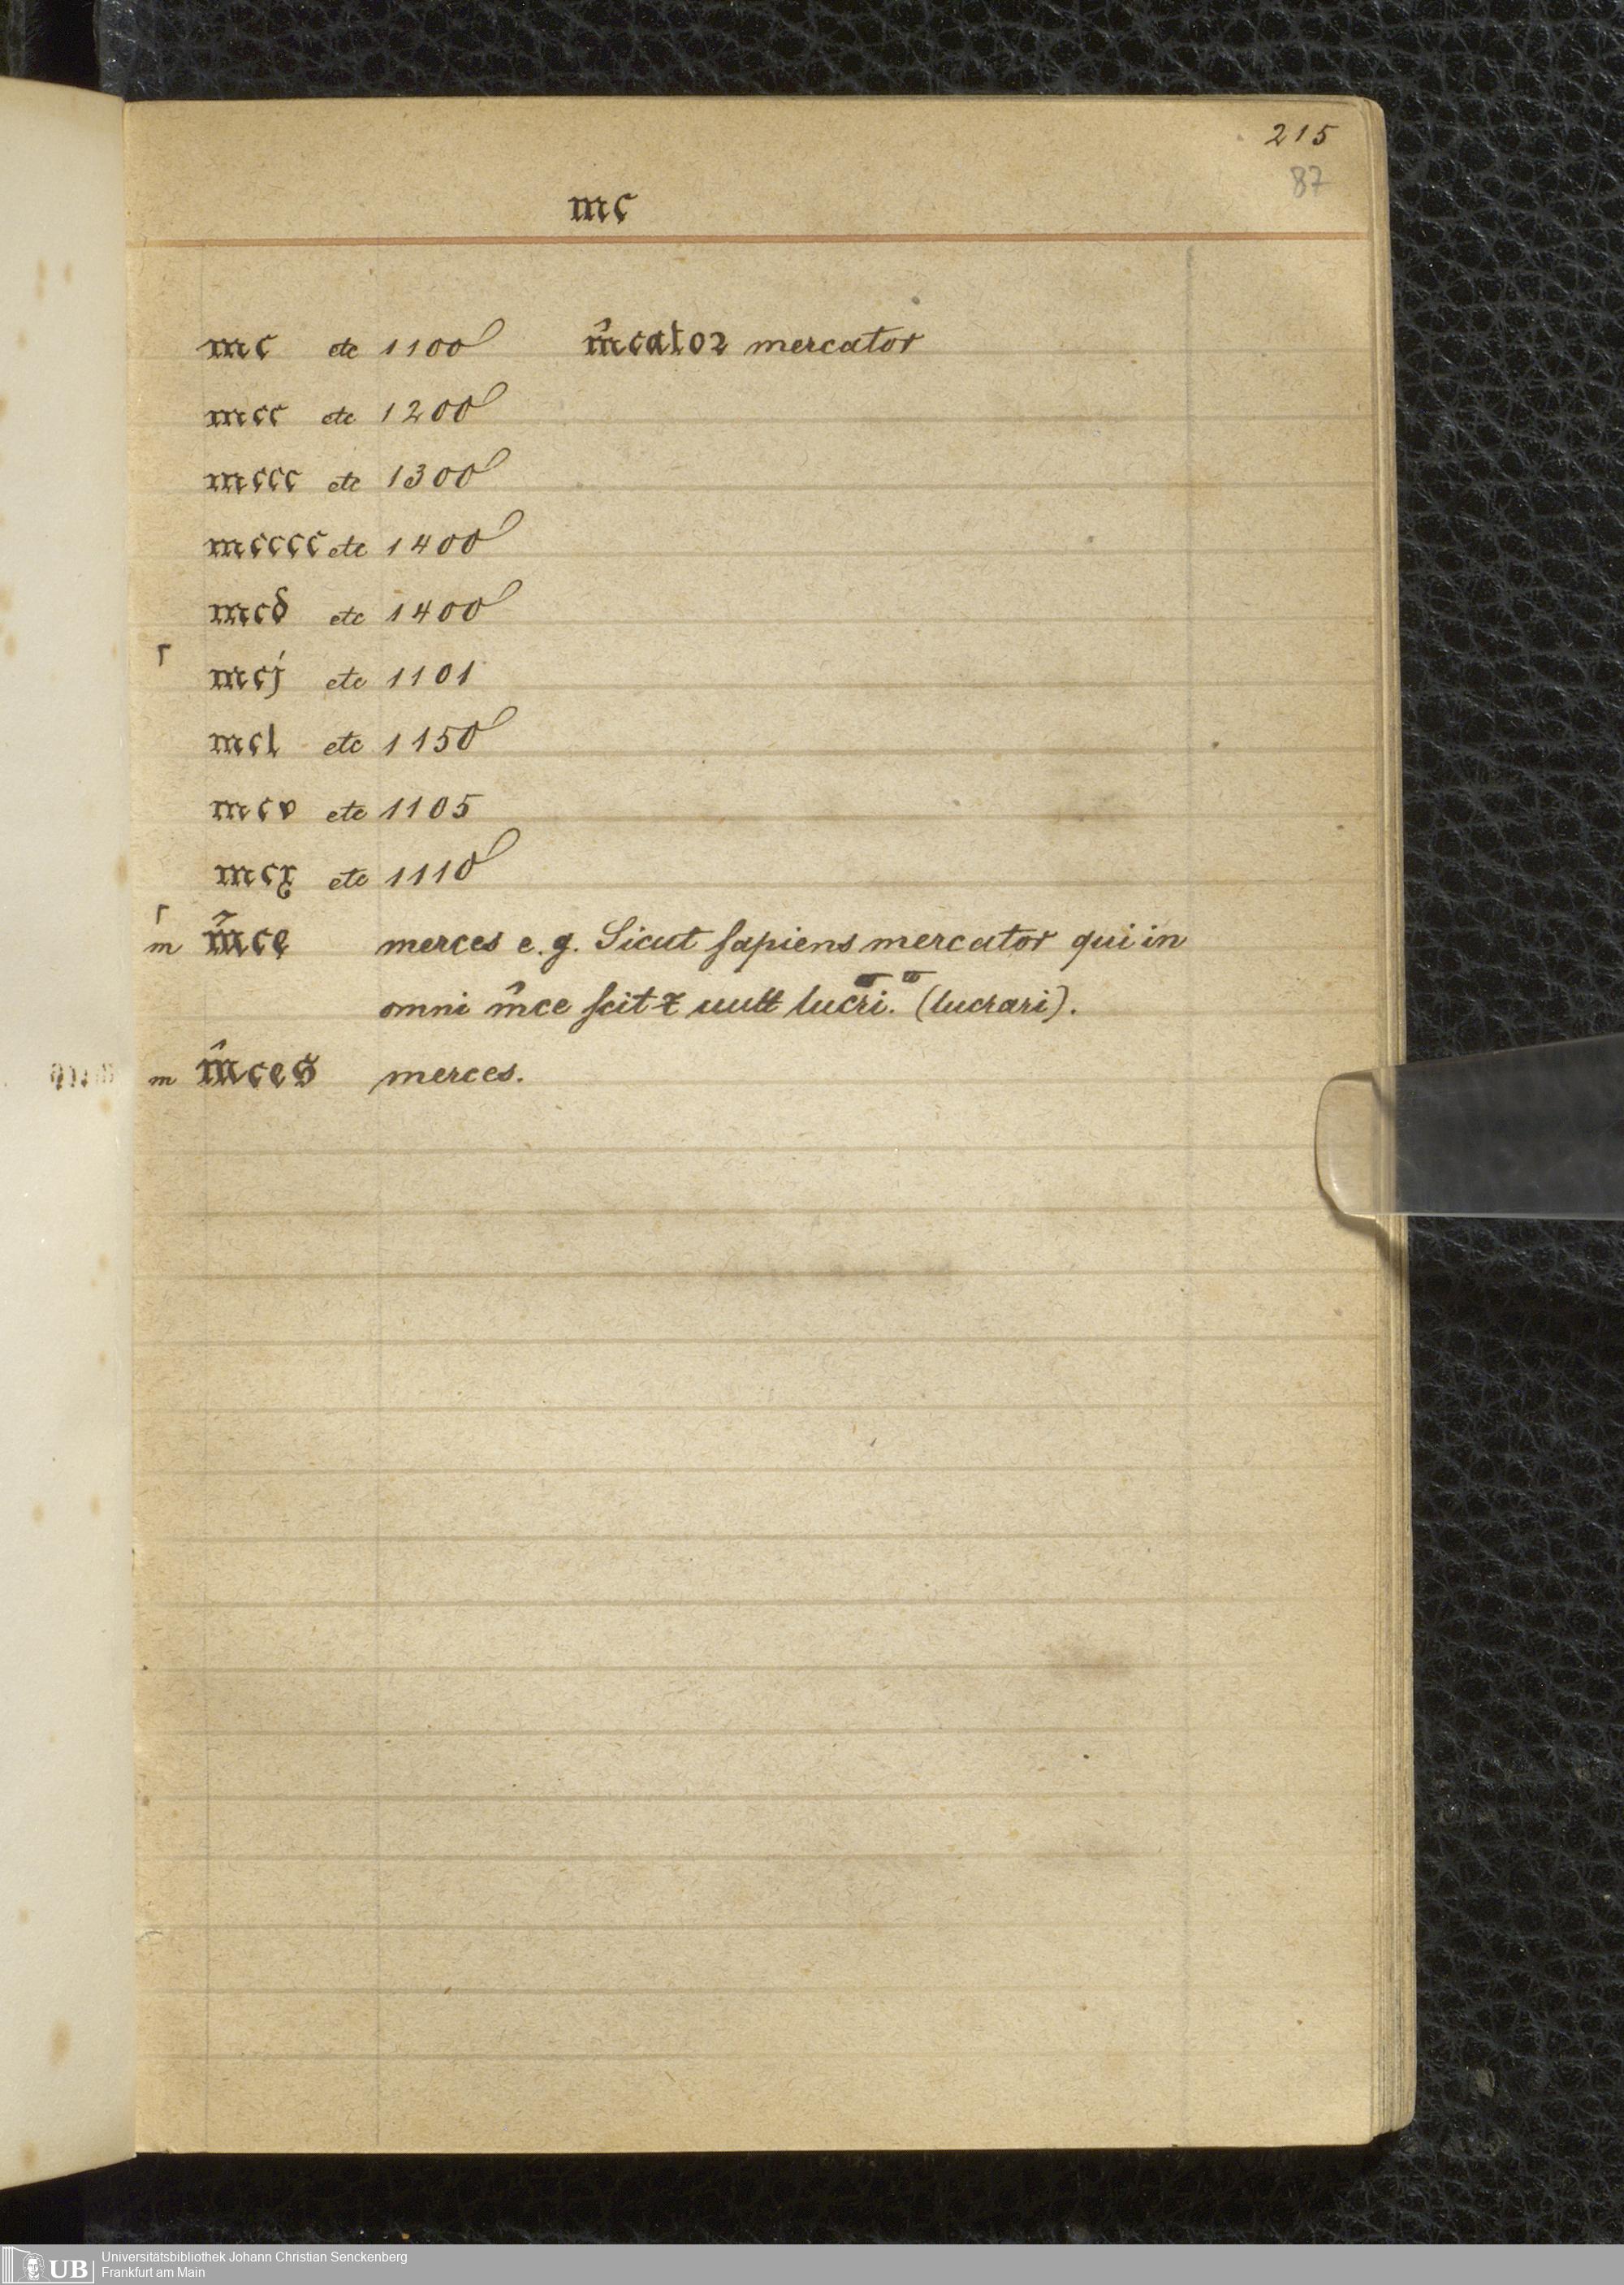 215
87
mc
mc etc 1100 m̂cator mercator
mcc etc 1200
mccc etc 1300
mcccc etc 1400
mcd etc 1400
mcj etc 1101
mcl etc 1150
mcv etc 1105
mcx etc 1110
m m̃ce merces e.g. Sicut sapiens mercator qui in
omni m̂ce scit ⁊ uult lucri. (lucrari).
m m̂ces merces.
UB Universitätsbibliothek Johann Christian Senckenberg
Frankfurt am Main